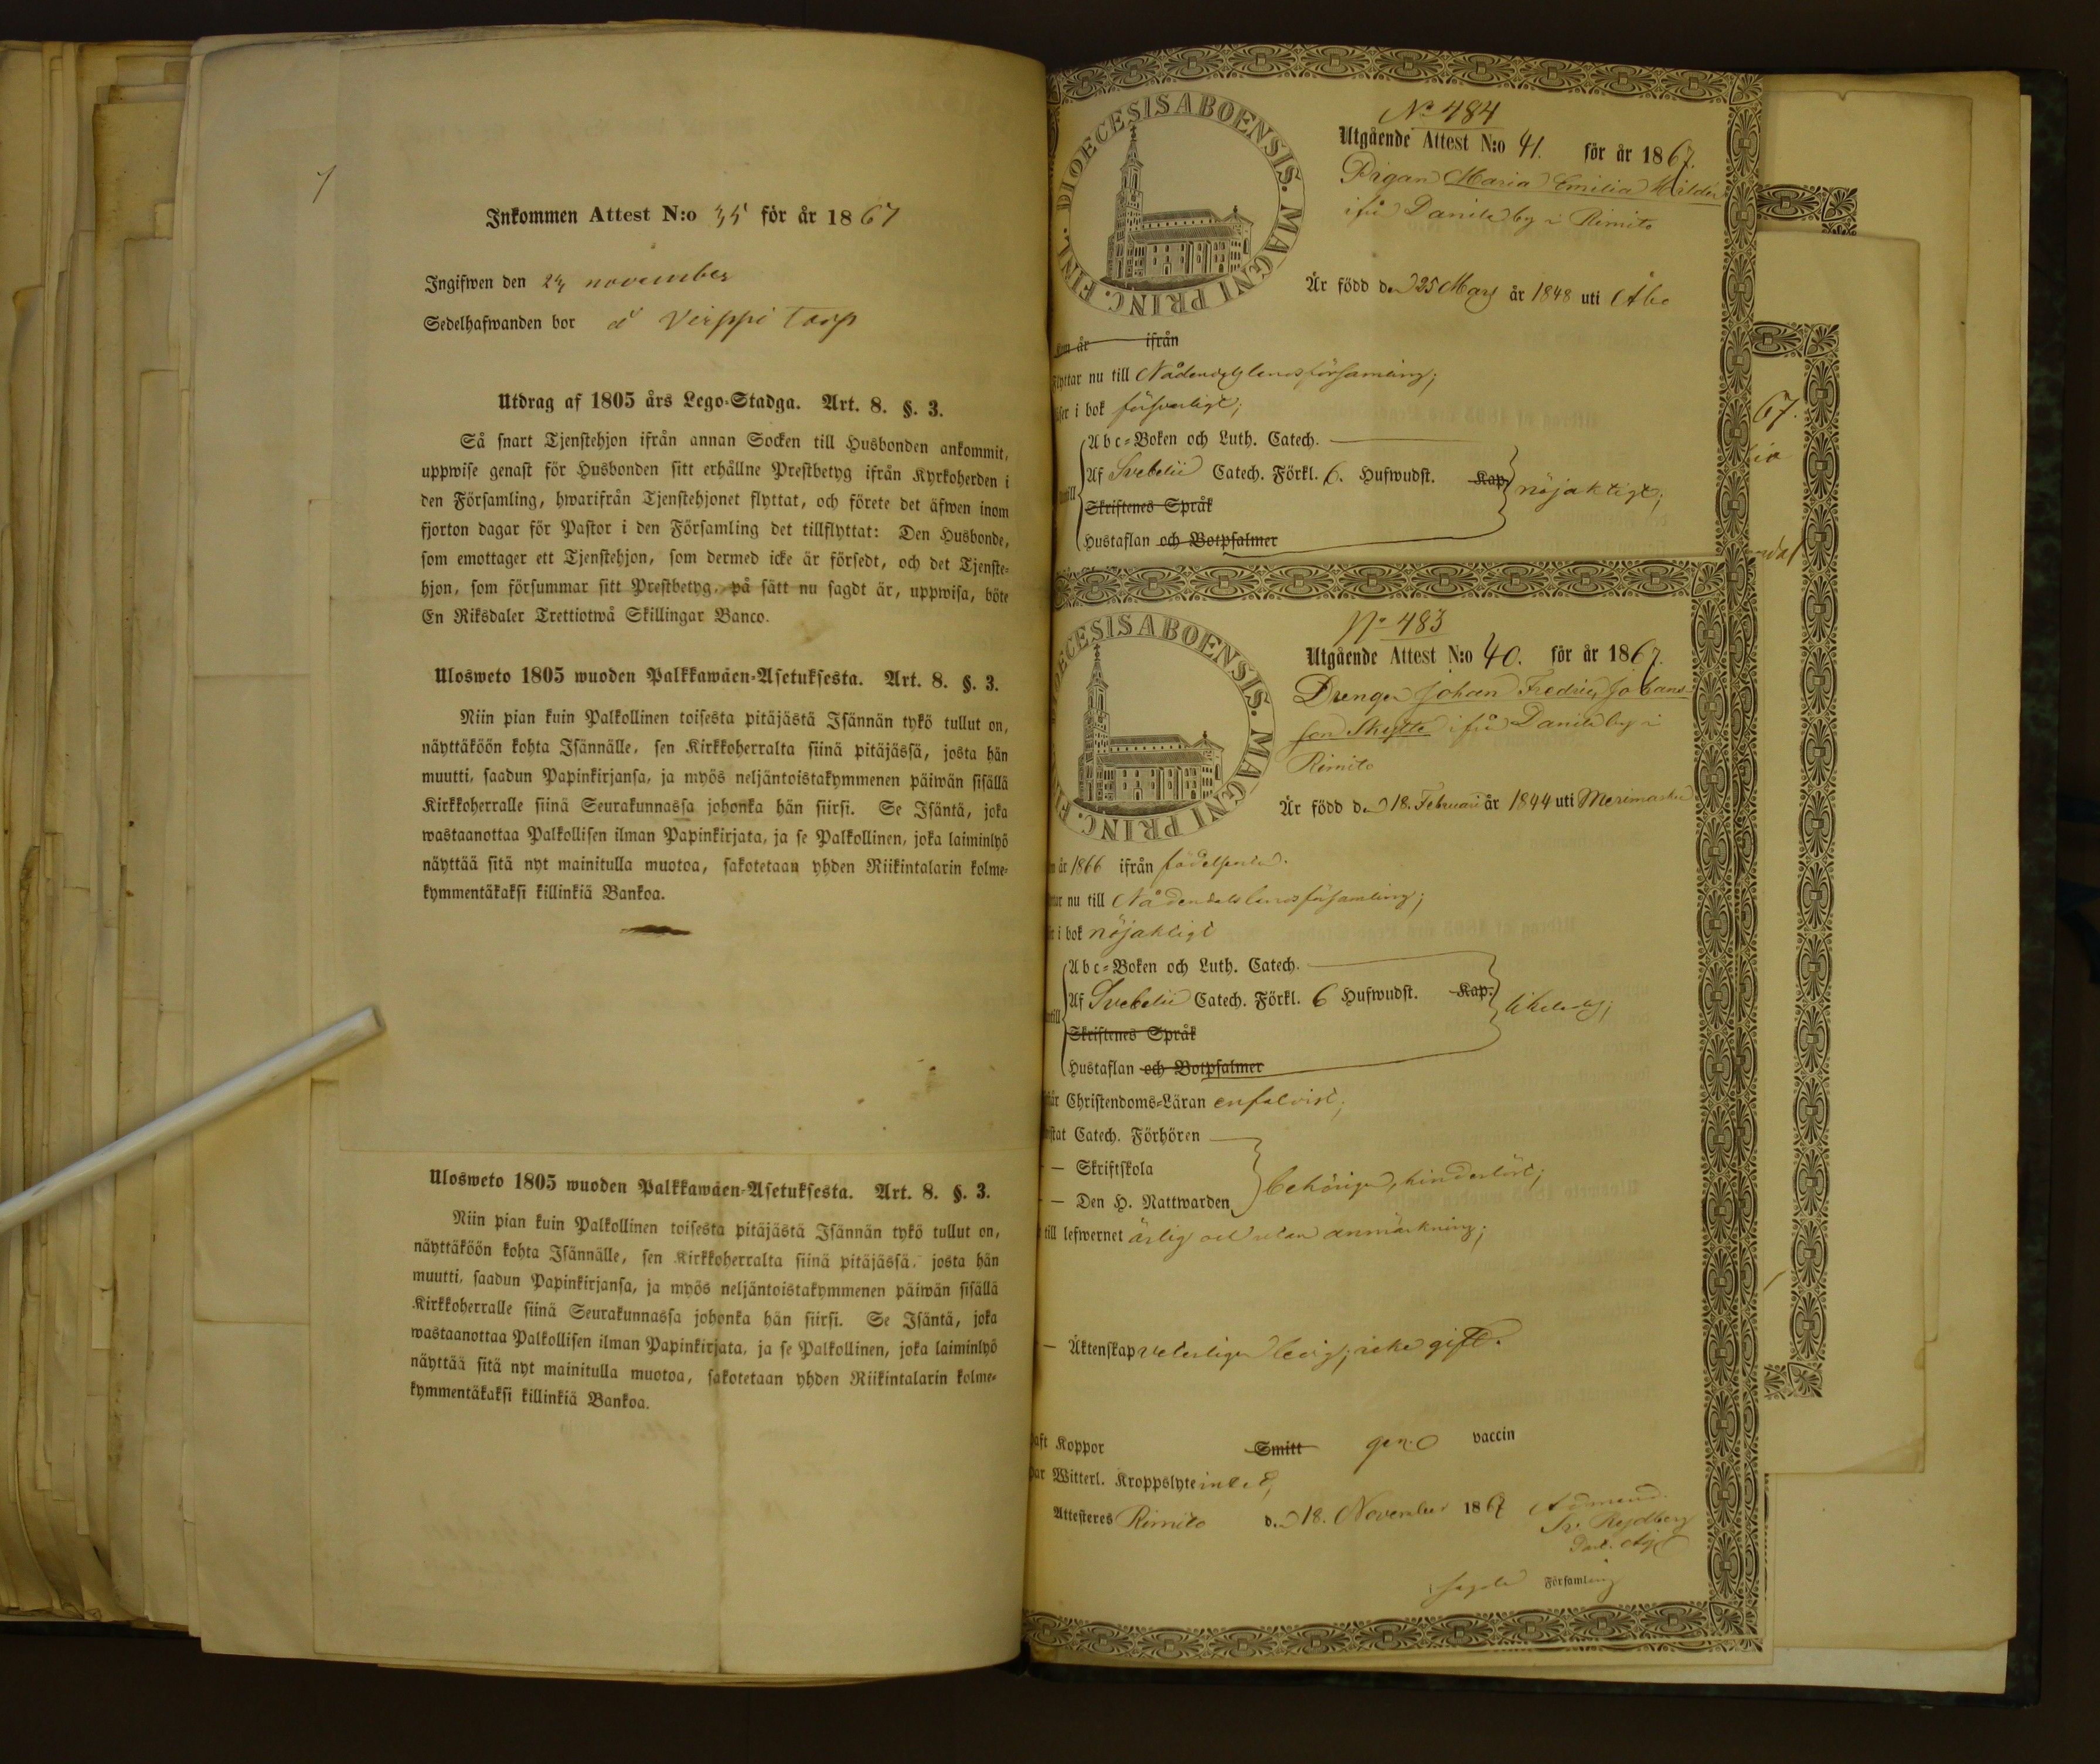 Inkommen Attest N:o 35 för år 1867
Ingifwen den 24 november
Sedelhafwanden bor å Virppi torp
Utdrag af 1805 års Lego-Stadga. Art. 8. §. 3.
Så snart Tjenstehjon ifrån annan Socken till Husbonden ankommit,
uppwise genast för Husbonden sitt erhållne Prestbetyg ifrån Kyrkoherden i
den Församling, hwarifrån Tjenstehjonet flyttat, och förete det äfwen inom
fjorton dagar för Pastor i den Församling det tillflyttat: Den Husbonde,
som emottager ett Tjenstehjon, som dermed icke är försedt, och det Tjenste-
hjon, som försummar sitt Prestbetyg, på sätt nu sagdt är, uppwisa, böte
En Riksdaler Trettiotwå Skillingar Banco.
Ulosweto 1805 wuoden Palkkawäen-Asetuksesta. Art. 8. §. 3.
Niin pian kuin Palkollinen toisesta pitäjästä Isännän tykö tullut on,
näyttäköön kohta Isännälle, sen Kirkkoherralta siinä pitäjässä, josta hän
muutti, saadun Papinkirjansa, ja myös neljäntoistakymmenen päiwän sisällä
Kirkkoherralle siinä Seurakunnassa johonka hän siirsi. Se Isäntä, joka
wastaanottaa Palkollisen ilman Papinkirjata, ja se Palkollinen, joka laiminlyö
näyttää sitä nyt mainitulla muotoa, sakotetaan yhden Riikintalarin kolme-
kymmentäkaksi killinkiä Bankoa.
Ulosweto 1805 wuoden Palkkawäen-Asetuksesta. Art. 8. §. 3.
Niin pian kuin Palkollinen toisesta pitäjästä Isännän tykö tullut on,
näyttäköön kohta Isännälle, sen Kirkkoherralta siinä pitäjässä, josta hän
muutti, saadun Papinkirjansa, ja myös neljäntoistakymmenen päiwän sisällä
Kirkkoherralle siinä Seurakunnassa johonka hän siirsi. Se Isäntä, joka
wastaanottaa Palkollisen ilman Papinkirjata, ja se Palkollinen, joka laiminlyö
näyttää sitä nyt mainitulla muotoa, sakotetaan yhden Riikintalarin kolme-
kymmentäkaksi killinkiä Bankoa.
DIOECESIS ABOENSIS. MAGNI PRINC. FINL.
No 484
Utgående Attest N:o 41. för år 1867.
Pigan Maria Emilia
ifrån Danila by i Rimito
Är född den 25 Mars år 1848 uti Åbo
år ifrån
Flyttar nu till Nådendals landsförsamling;
i bok försvarligt;
Abc-Boken och Luth. Catech.
Af Svebelii Catech. Förkl. 6. Hufwudst. Kap. nöjaktigt;
Skriftenes Språk
Hustaflan och Botpsalmer
DIOECESIS ABOENSIS. MAGNI PRINC.
No 483
Utgående Attest N:o 40. för år 1867.
Drengen Johan Fredric Johans-
son Skytte ifrån Danila by i
Rimito
Är född den 18. Februari år 1844 uti Merimasku
år 1866 ifrån födelseorten.
nu till Nådendals landsförsamling;
i bok nöjaktigt
Abc-Boken och Luth. Catech.
Af Svebelii Catech. Förkl. 6 Hufwudst. Kap. likaledes;
Skriftenes Språk
Hustaflan och Botpsalmer
Christendoms-Läran enfaldigt;
Catech. Förhören
— Skriftskola
— Den H. Nattwarden behörigen, hinderlöst;
till lefwernet ärlig och utan anmärkning;
— Äktenskap veterligen ledig, icke gift.
Koppor Smitt gen. vaccin
Witterl. Kroppslyte intet;
Attesteres Rimito d. 18. November 1867
Fr. Rydberg
Församling
67.